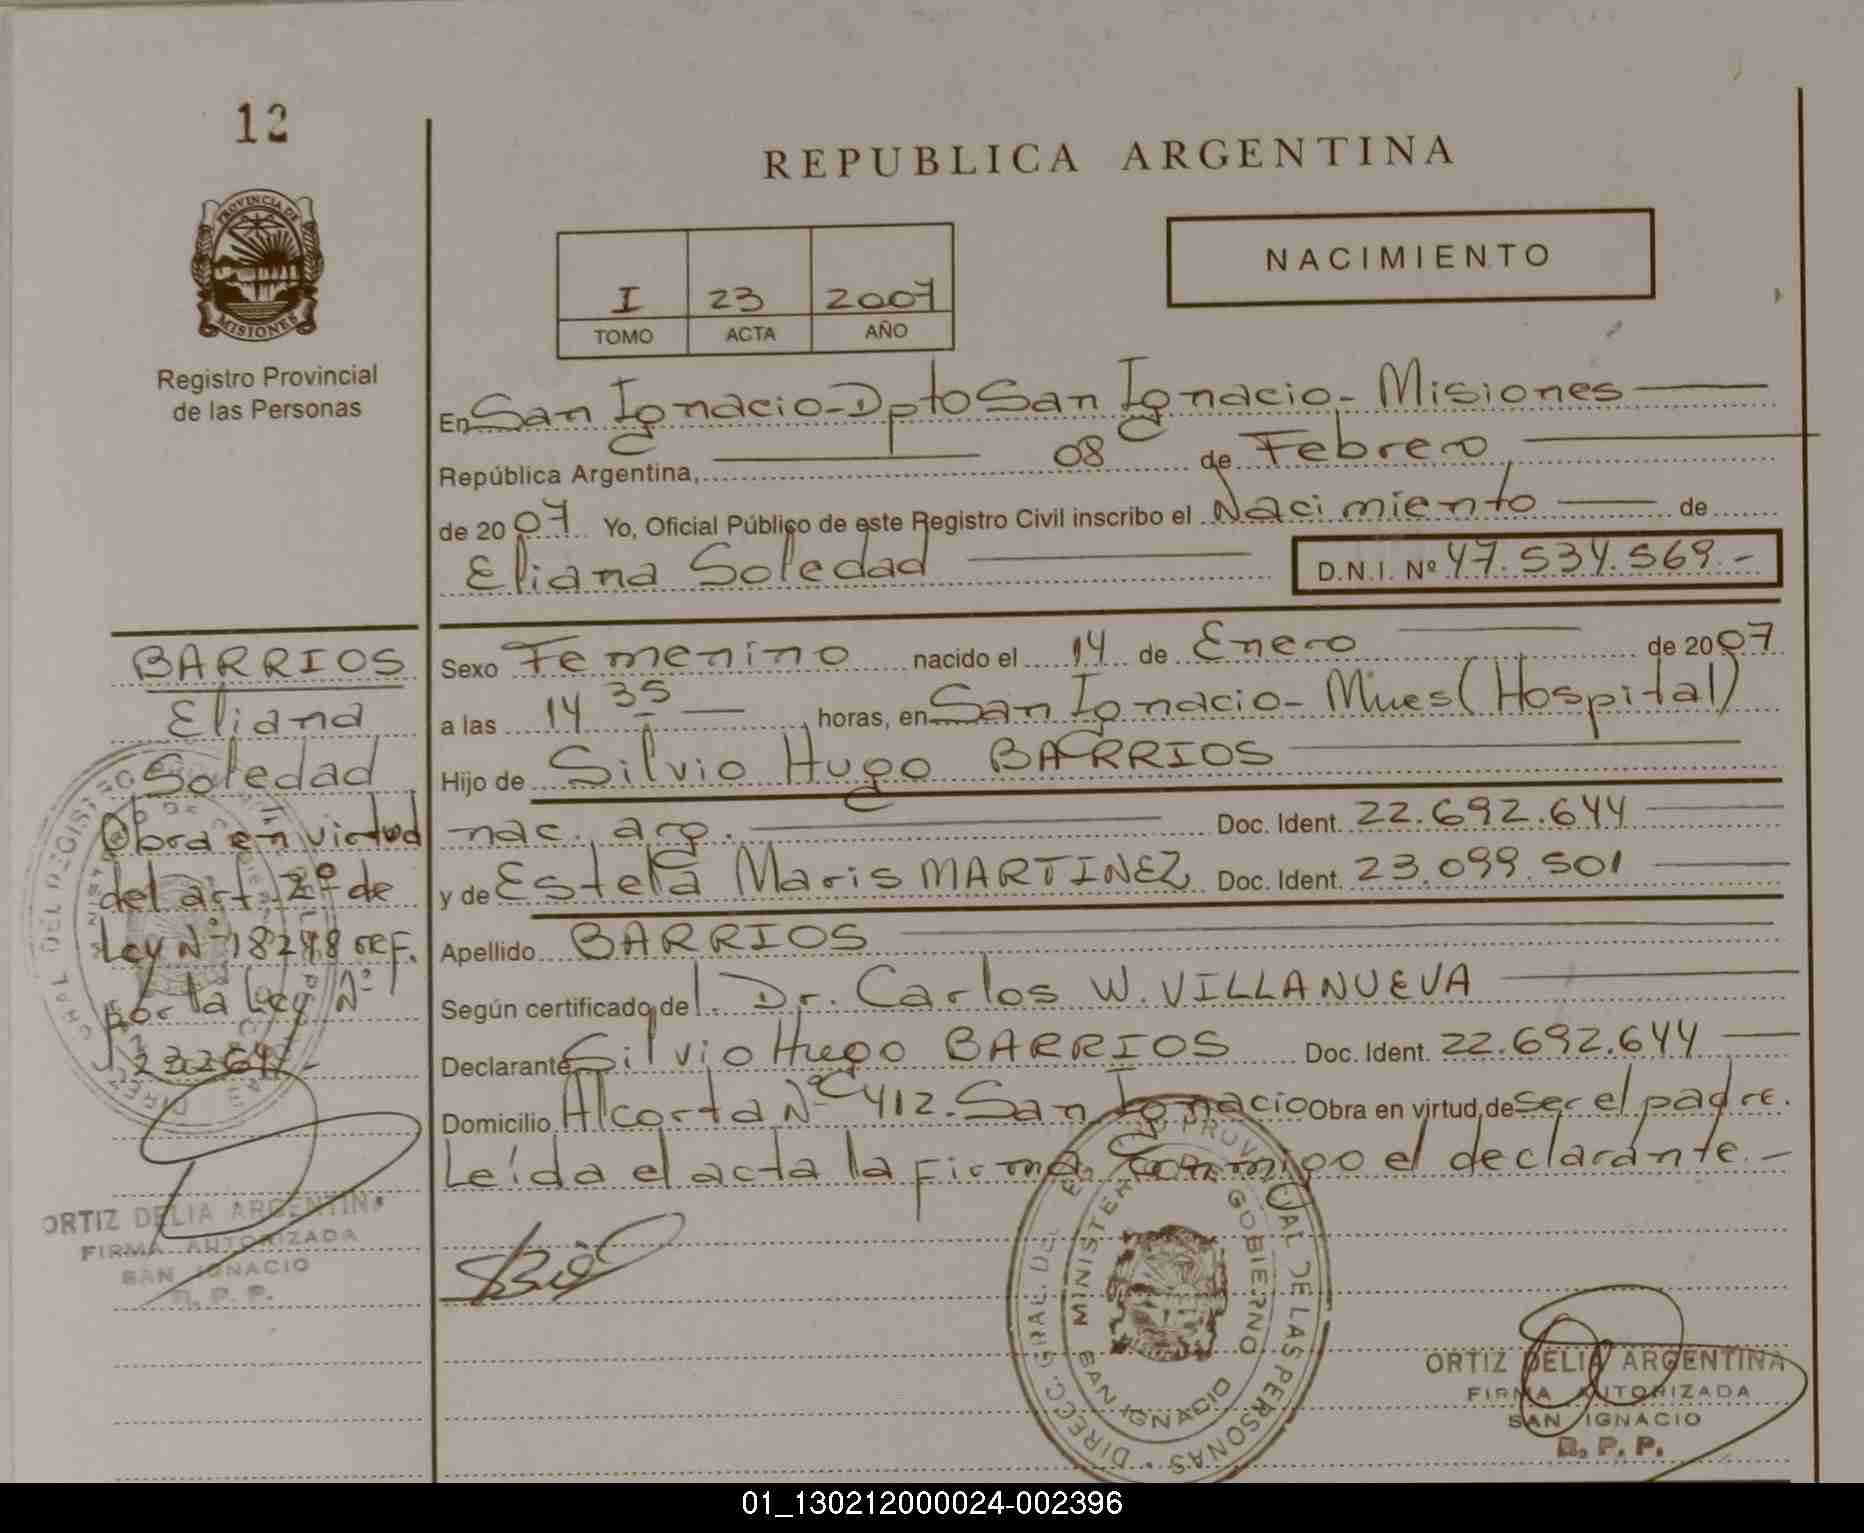 12
PROVINCIA DE
MISIONES
Registro Provincial
de las Personas
REPUBLICA ARGENTINA
I 23 2007
TOMO ACTA AÑO
NACIMIENTO
En San Ignacio - Dpto San Ignacio - Misiones
República Argentina, 08 de Febrero
de 2007 Yo, Oficial Público de este Registro Civil inscribo el Nacimiento de
Eliana Soledad D.N.I. Nº 47.534.569.-
Sexo Femenino nacido el 14 de Enero de 2007
a las 14 35 horas, en San Ignacio - Mnes (Hospital)
Hijo de Silvio Hugo BARRIOS
nac. arg. Doc. Ident. 22.692.644
y de Estela Maris MARTINEZ Doc. Ident. 23.099.501
Apellido BARRIOS
Según certificado del Dr. Carlos W. VILLANUEVA
Declarante Silvio Hugo BARRIOS Doc. Ident. 22.692.644
Domicilio Alcorta Nº 412. San Ignacio Obra en virtud de ser el padre.
Leída el acta la firma conmigo el declarante.-
BARRIOS
Eliana
Soledad
Obra en virtud
del art. 2º de
Ley Nº 18248 ref.
por la Ley Nº
23264.-
ORTIZ DELIA ARGENTINA
FIRMA AUTORIZADA
SAN IGNACIO
R. P. P.
MINISTER GOBIERNO
SAN IGNACIO
DIRECC. GRAL. DEL
DE LAS PERSONAS
ORTIZ DELIA ARGENTINA
FIRMA AUTORIZADA
SAN IGNACIO
R. P. P.
01_130212000024-002396